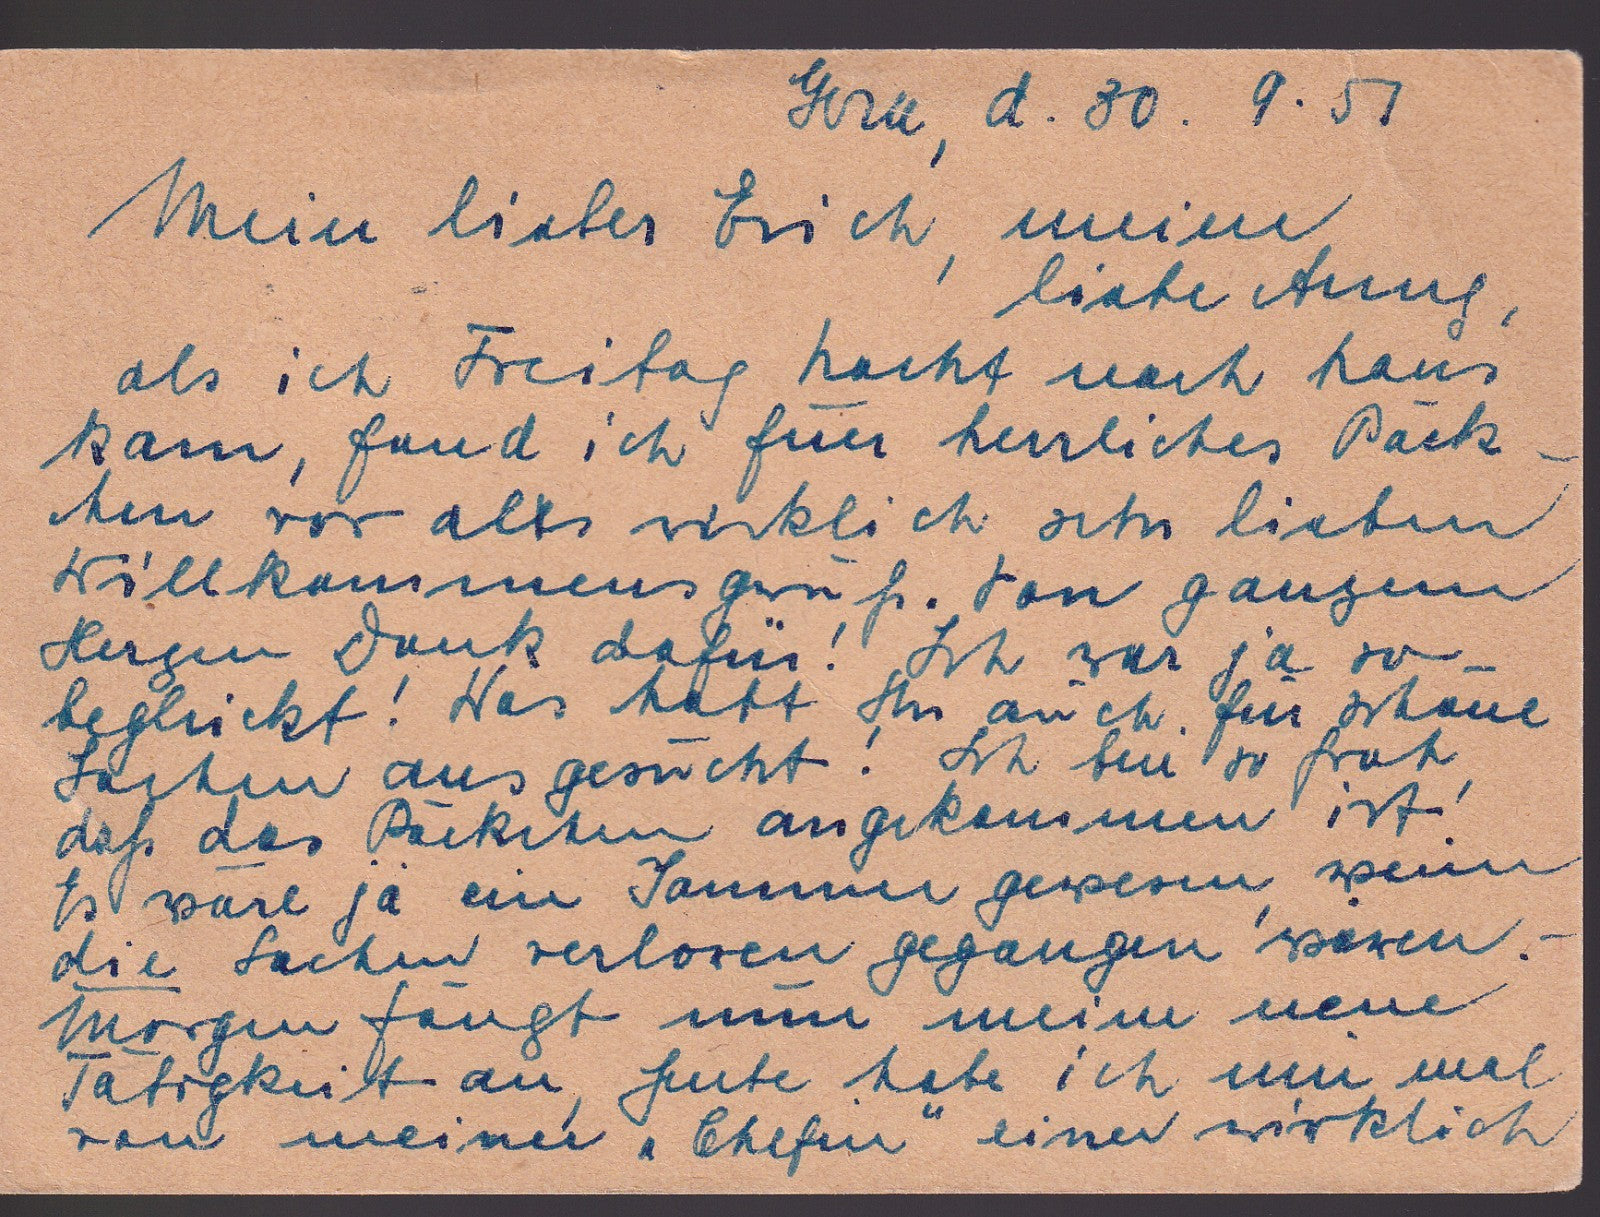 Gera, d. 30. 9. 51
Mein lieber Erich, meine
liebe Anny,
als ich Freitag Nacht nach Haus
kam, fand ich Euer herrliches Päck-
chen vor als wirklich sehr lieben
Willkommensgruß. Von ganzem
Herzen Dank dafür! Ich war ja so
beglückt! Was habt Ihr auch für schöne
Sachen ausgesucht! Ich bin so froh,
daß das Päckchen angekommen ist!
Es wäre ja ein Jammer gewesen, wenn
die Sachen verloren gegangen wären. -
Morgen fängt nun meine neue
Tätigkeit an, heute habe ich nun mal
von meiner „Chefin“ einen wirklich